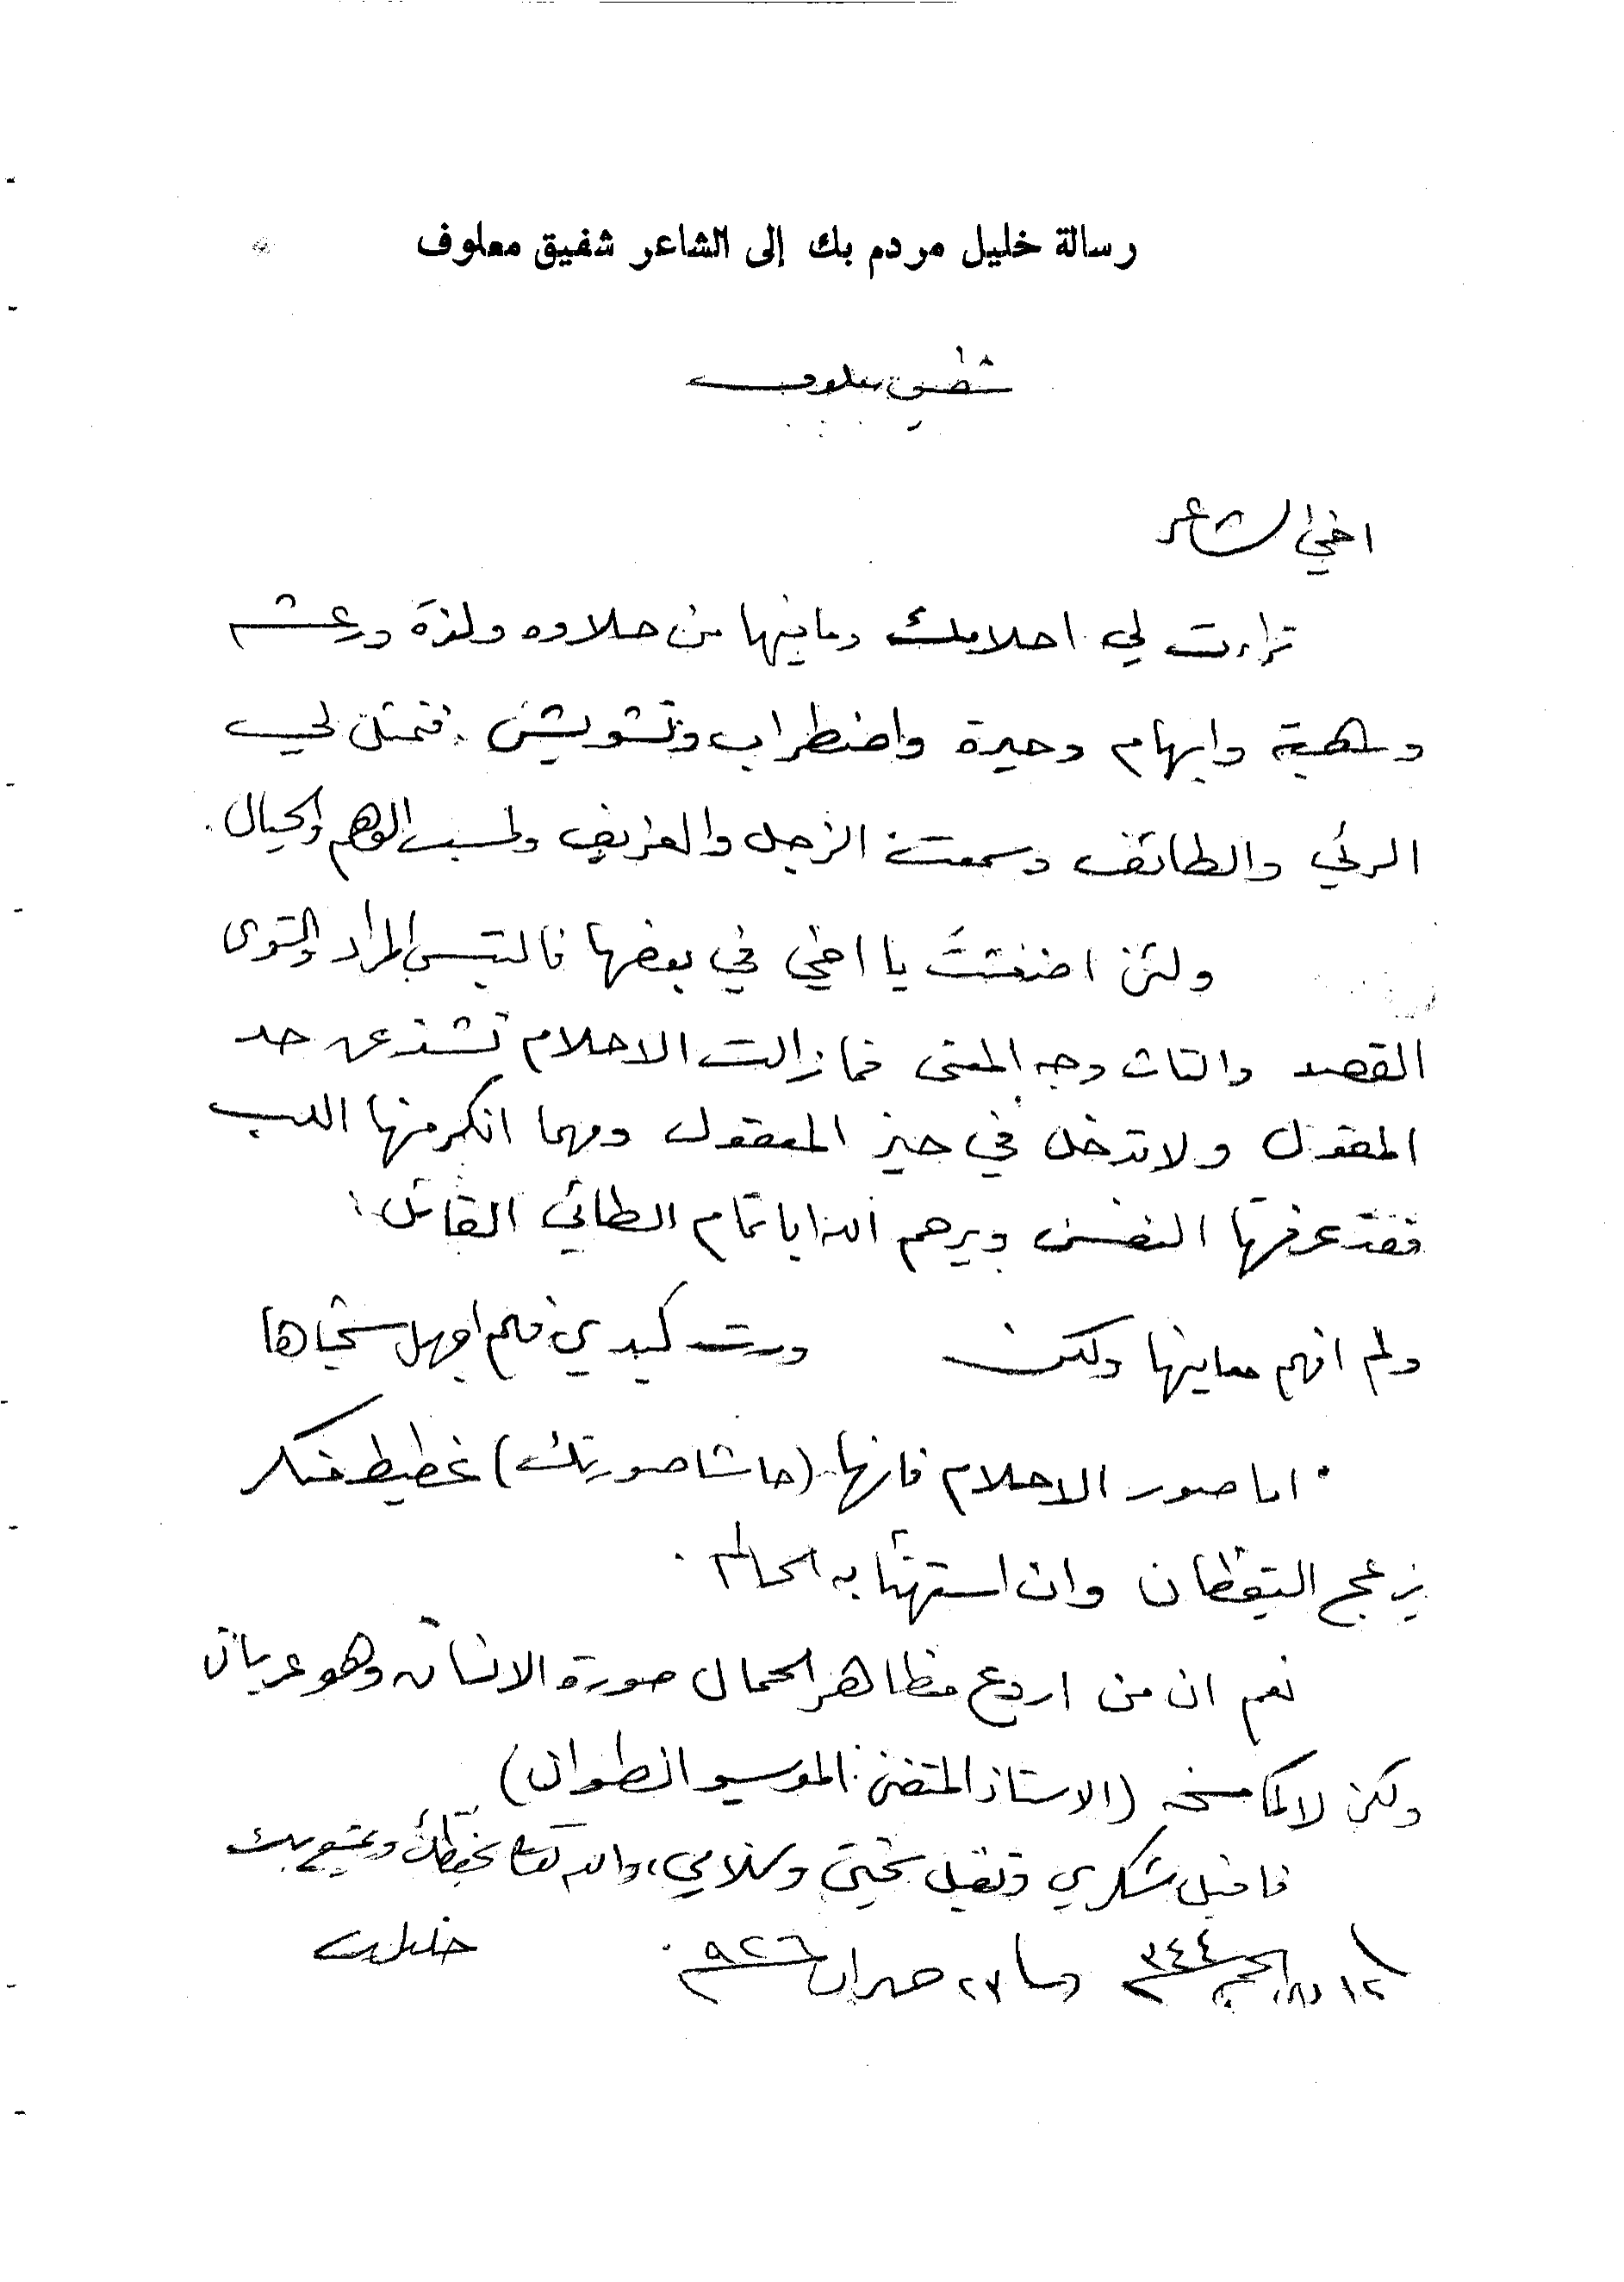 رسالة خليل مردم بك إلى الشاعر شفيق معلوف
شفيق معلوف
اخي الشاعر
تراءت لي احلامك وما فيها من حلاوه ولذة ورعشه
وهيبة وابهام وحيرة واضطراب وتشويش. فتمثل لي
الرئي والطائف وسمعت الزجل والعزيف ولمست الوهم والخيال.
ولئن اضغثتَ يا اخي في بعضها فالتبس المراد والتوى
القصد والتاث وجه المعنى فما زالت الاحلام تشذ عن حد
المقول ولا تدخل في حيز المعقول ومهما انكر منها اللب
فقد عرفتها النفس ويرحم الله ابا تمام الطائي القائل:
ولم افهم معانيها ولكن ورت كبدي فلم اجهل شجاها
اما صور الاحلام فانها (حاشا صورتك) غطيط منكر
يزعج اليقظان وان استهنأ به الحالم.
نعم ان من اروع مظاهر الجمال صورة الانسان وهو عريان
ولكن لا كما مسخه (الاستاذ المتفنن الموسيو انطوان)
فاقبل شكري وتقبل تحيتي وسلامي، والله تعالى يحفظك ويمتع بك
١٢ ذي الحجة ٣٤٤ و ٢٢ حزيران ٩٢٦ خليل